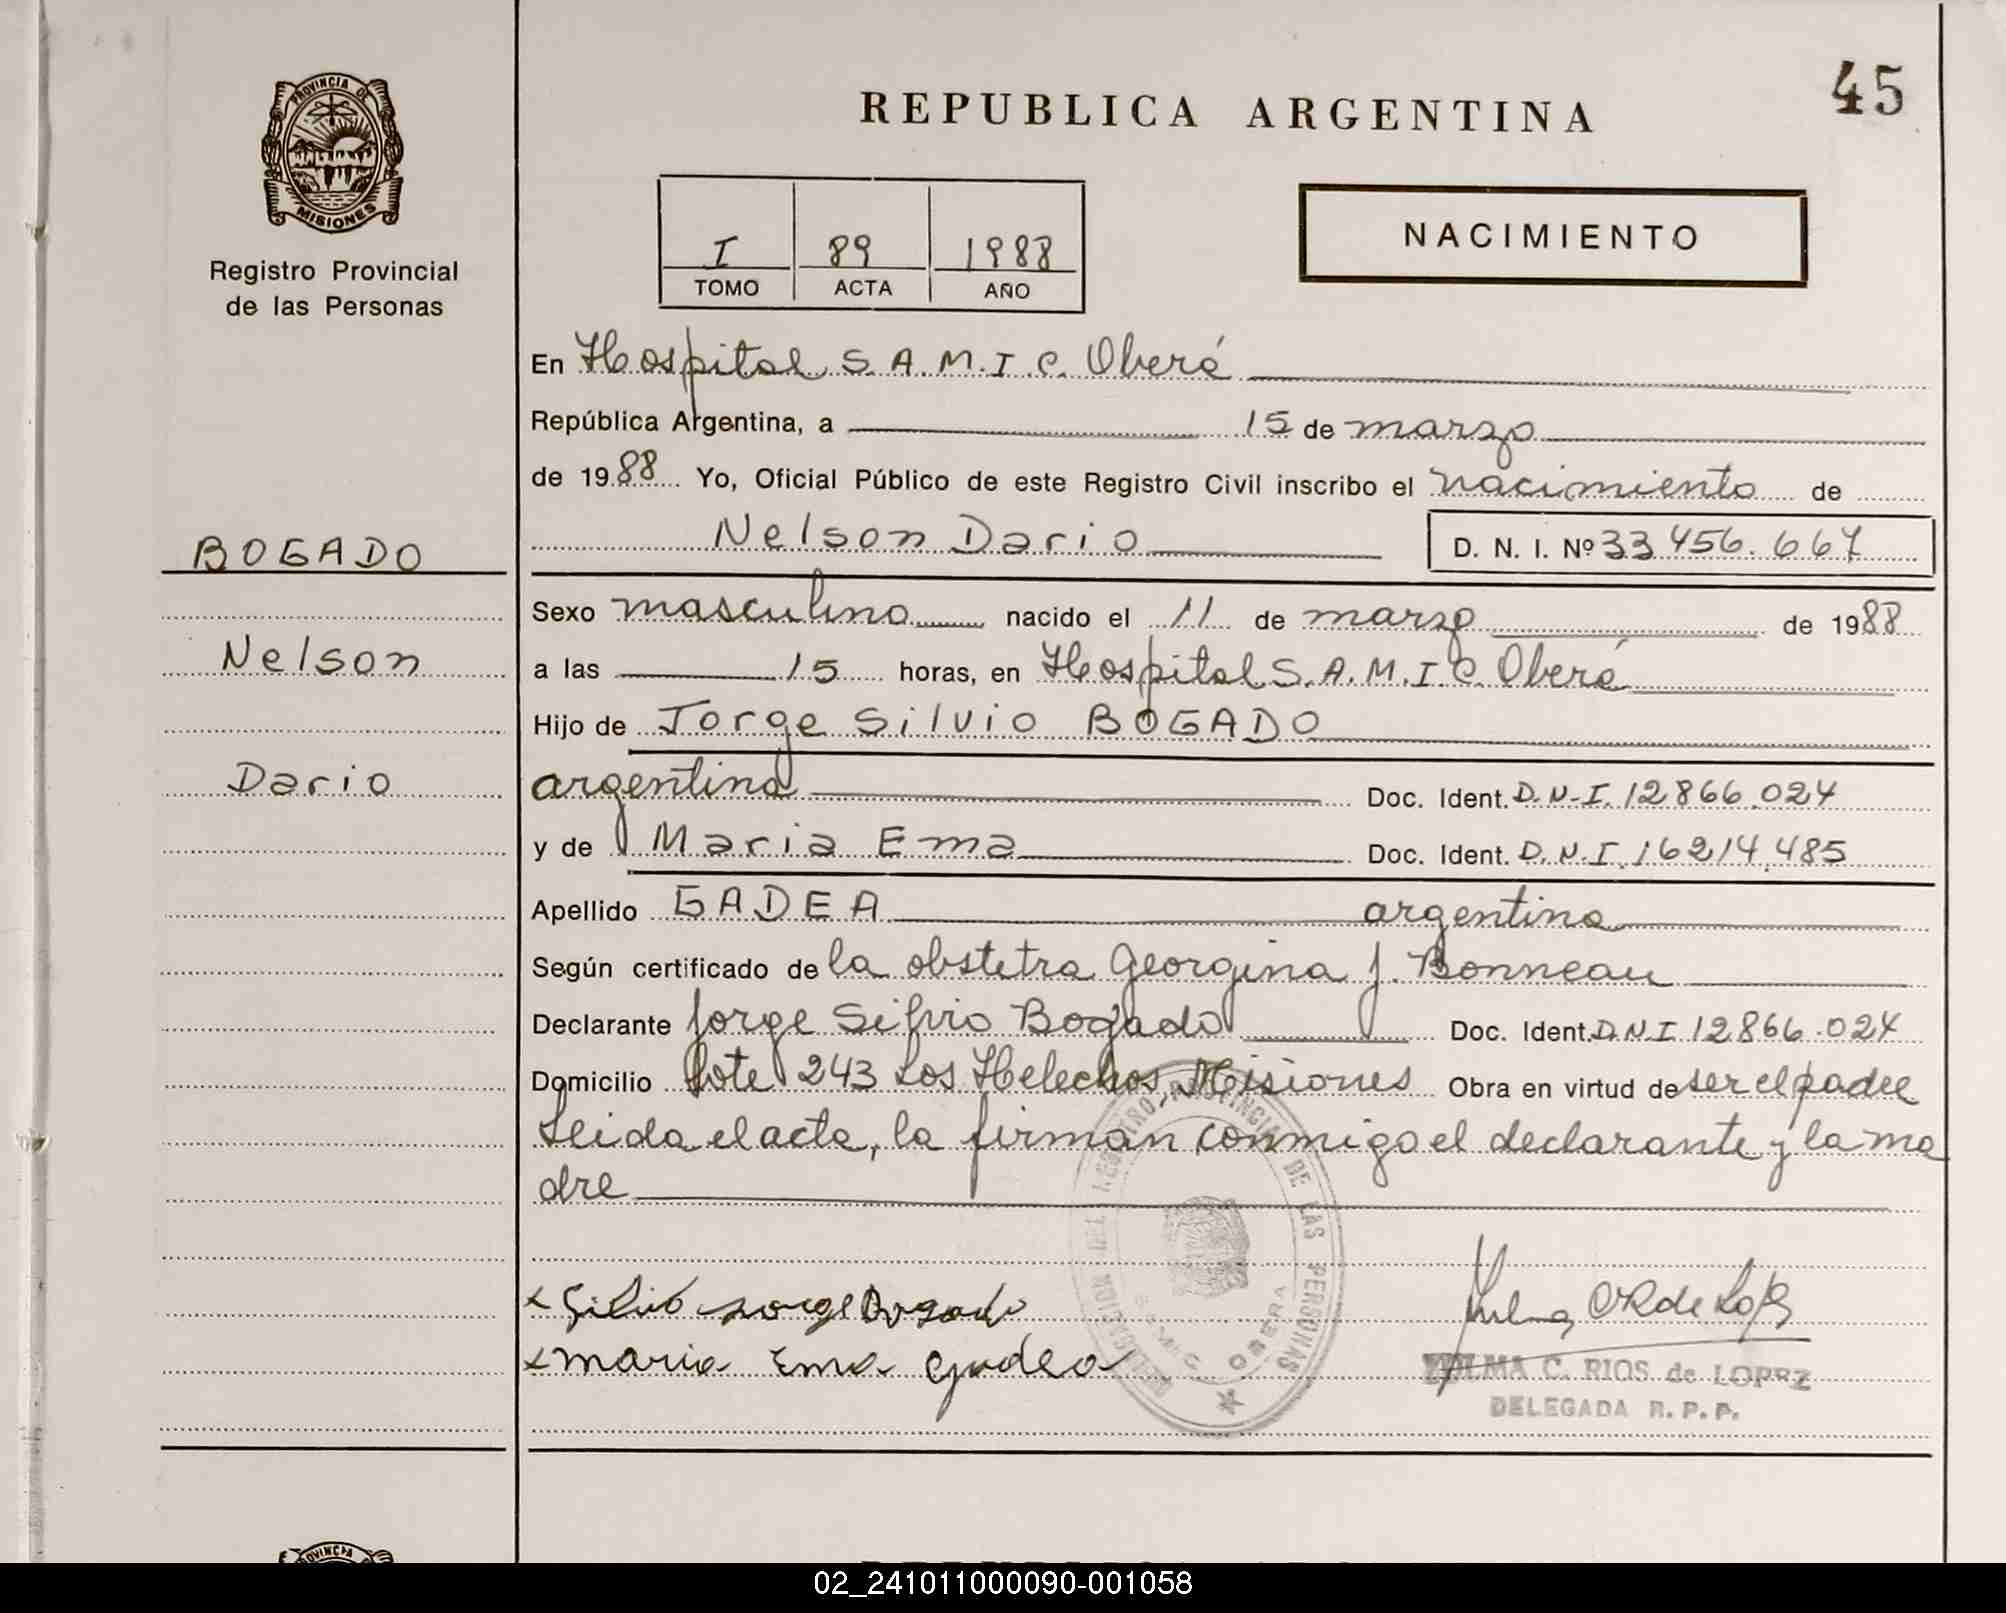 45
REPUBLICA ARGENTINA
PROVINCIA DE
MISIONES
Registro Provincial
de las Personas
I 89 1988
TOMO ACTA AÑO
NACIMIENTO
En Hospital S.A.M.I.C. Oberá
República Argentina, a 15 de marzo
de 1988 Yo, Oficial Público de este Registro Civil inscribo el nacimiento de
BOGADO
Nelson Dario D. N. I. Nº 33.456.667
Sexo masculino nacido el 11 de marzo de 1988
Nelson
a las 15 horas, en Hospital S.A.M.I.C. Oberá
Hijo de Jorge Silvio BOGADO
Dario
argentina Doc. Ident. D.N.I. 12866.024
y de Maria Ema Doc. Ident. D.N.I. 16214.485
Apellido GADEA argentina
Según certificado de la obstetra Georgina J. Bonneau
Declarante Jorge Silvio Bogado Doc. Ident. D.N.I 12866.024
Domicilio Lote 243 Los Helechos, Misiones Obra en virtud de ser el padre
Leida el acta, la firman conmigo el declarante y la ma
dre
Silvio Jorge Bogado
Maria Ema Gadea
DELEGACION DEL REGISTRO PROVINCIAL DE LAS PERSONAS
OBERA
ZULMA C. RIOS de LOPEZ
DELEGADA R. P. P.
PROVINCIA
02_241011000090-001058